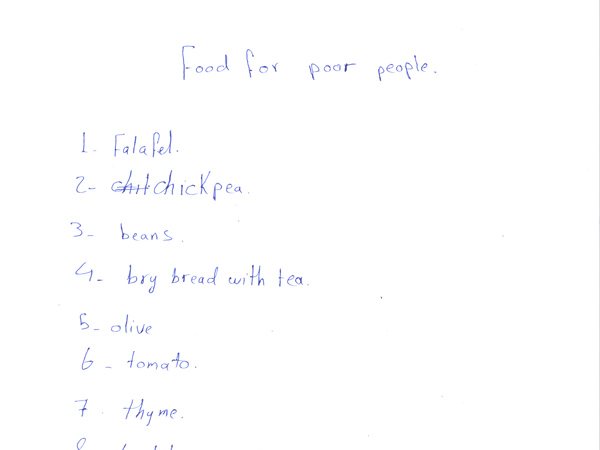 Food for poor people.
1. Falafel.
2- chickpea.
3- beans.
4- bry bread with tea.
5- olive
6- tomato.
7. thyme.
8